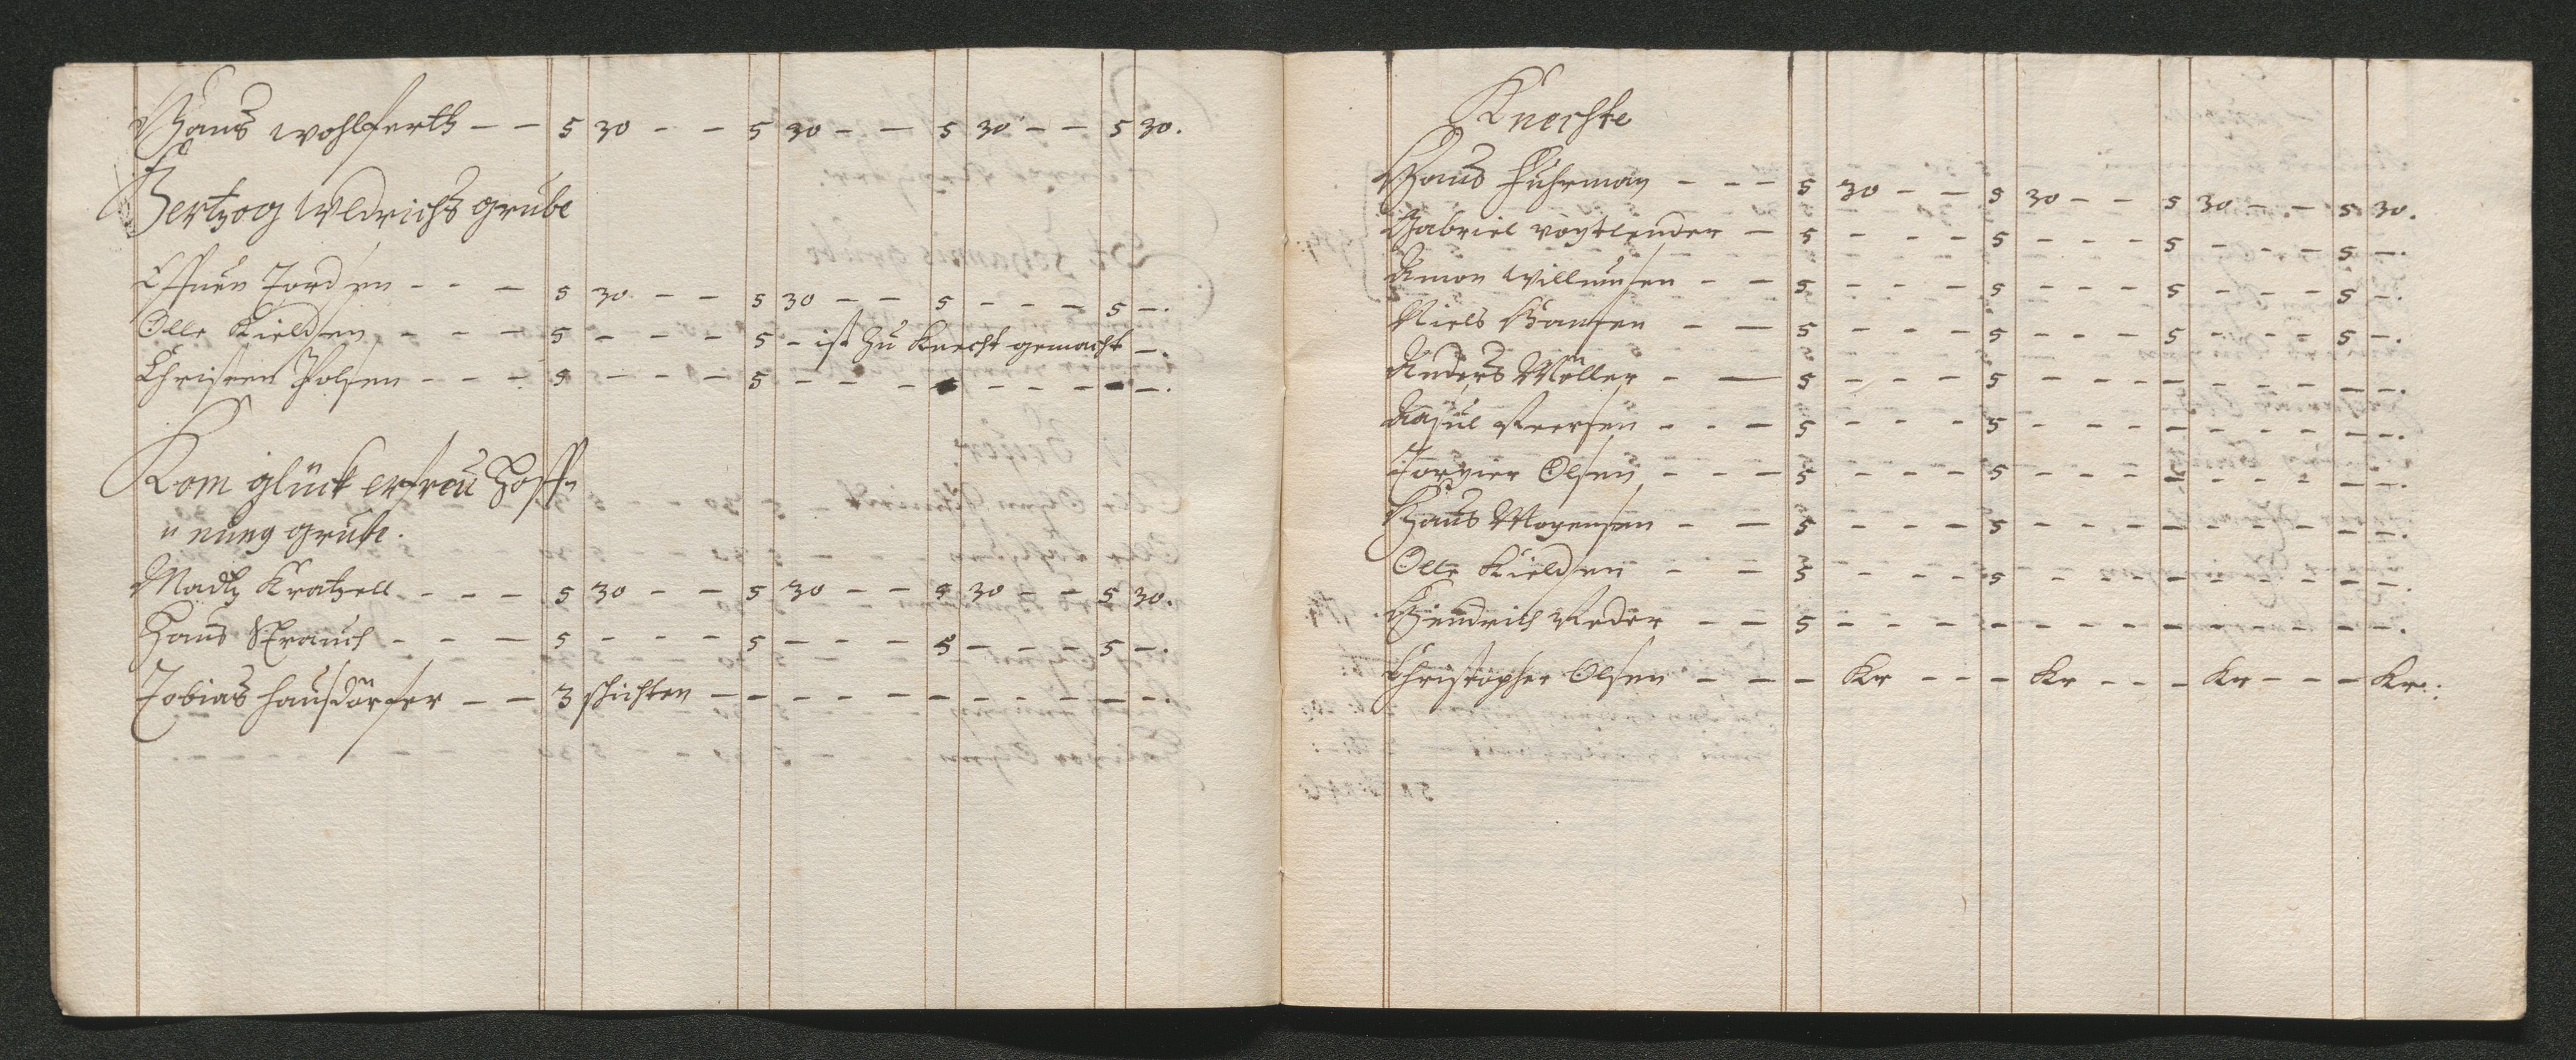 Hans wohlferth - - 5 30 - - 5 30 - - 5 30 - - 5 30.
Hertzog Uldrichs grube
Effuen Tordsen - - - 5 30 - - 5 30 - - 5 - - - 5 -.
Olle Kieldsen - - - 5 - - - 5 - ist zu Knecht gemacht -.
Christen Polsen - - - 5 - - - 5 - - - - - - - - -.
Kom glück erfreu Hoff=
"nung grube.
Madtz Kratzell - - - 5 30 - - 5 30 - - 5 30 - - 5 30.
Hans Strauch - - - 5 - - - 5 - - - 5 - - - 5 -.
Tobias Hausdörfer - - 3 schichten - - - - - - - - - - - -.
Knechte
Hans Fuhrman - - - 5 30 - - 5 30 - - 5 30 - - 5 30.
Gabriel voytlender - 5 - - - 5 - - - 5 - - - 5 -.
Amon Willumsen - - 5 - - - 5 - - - 5 - - - 5 -.
Niels Hansen - - 5 - - - 5 - - - 5 - - - 5 -.
Anders Möller - - 5 - - - 5 - - - - - - - - -.
Aasul Peersen - - - 5 - - - 5 - - - - - - - - -.
Torgier Olsen - - - 5 - - - 5 - - - - - - - - -.
Hans Mogensen - - 5 - - - 5 - - - - - - - - -.
Olle Kieldsen - - 5 - - - 5 - - - - - - - - -.
Hendrich Reder - - 5 - - - - - - - - - - - - -.
Christopher Olsen - - - Kr - - - Kr - - - Kr - - - Kr.